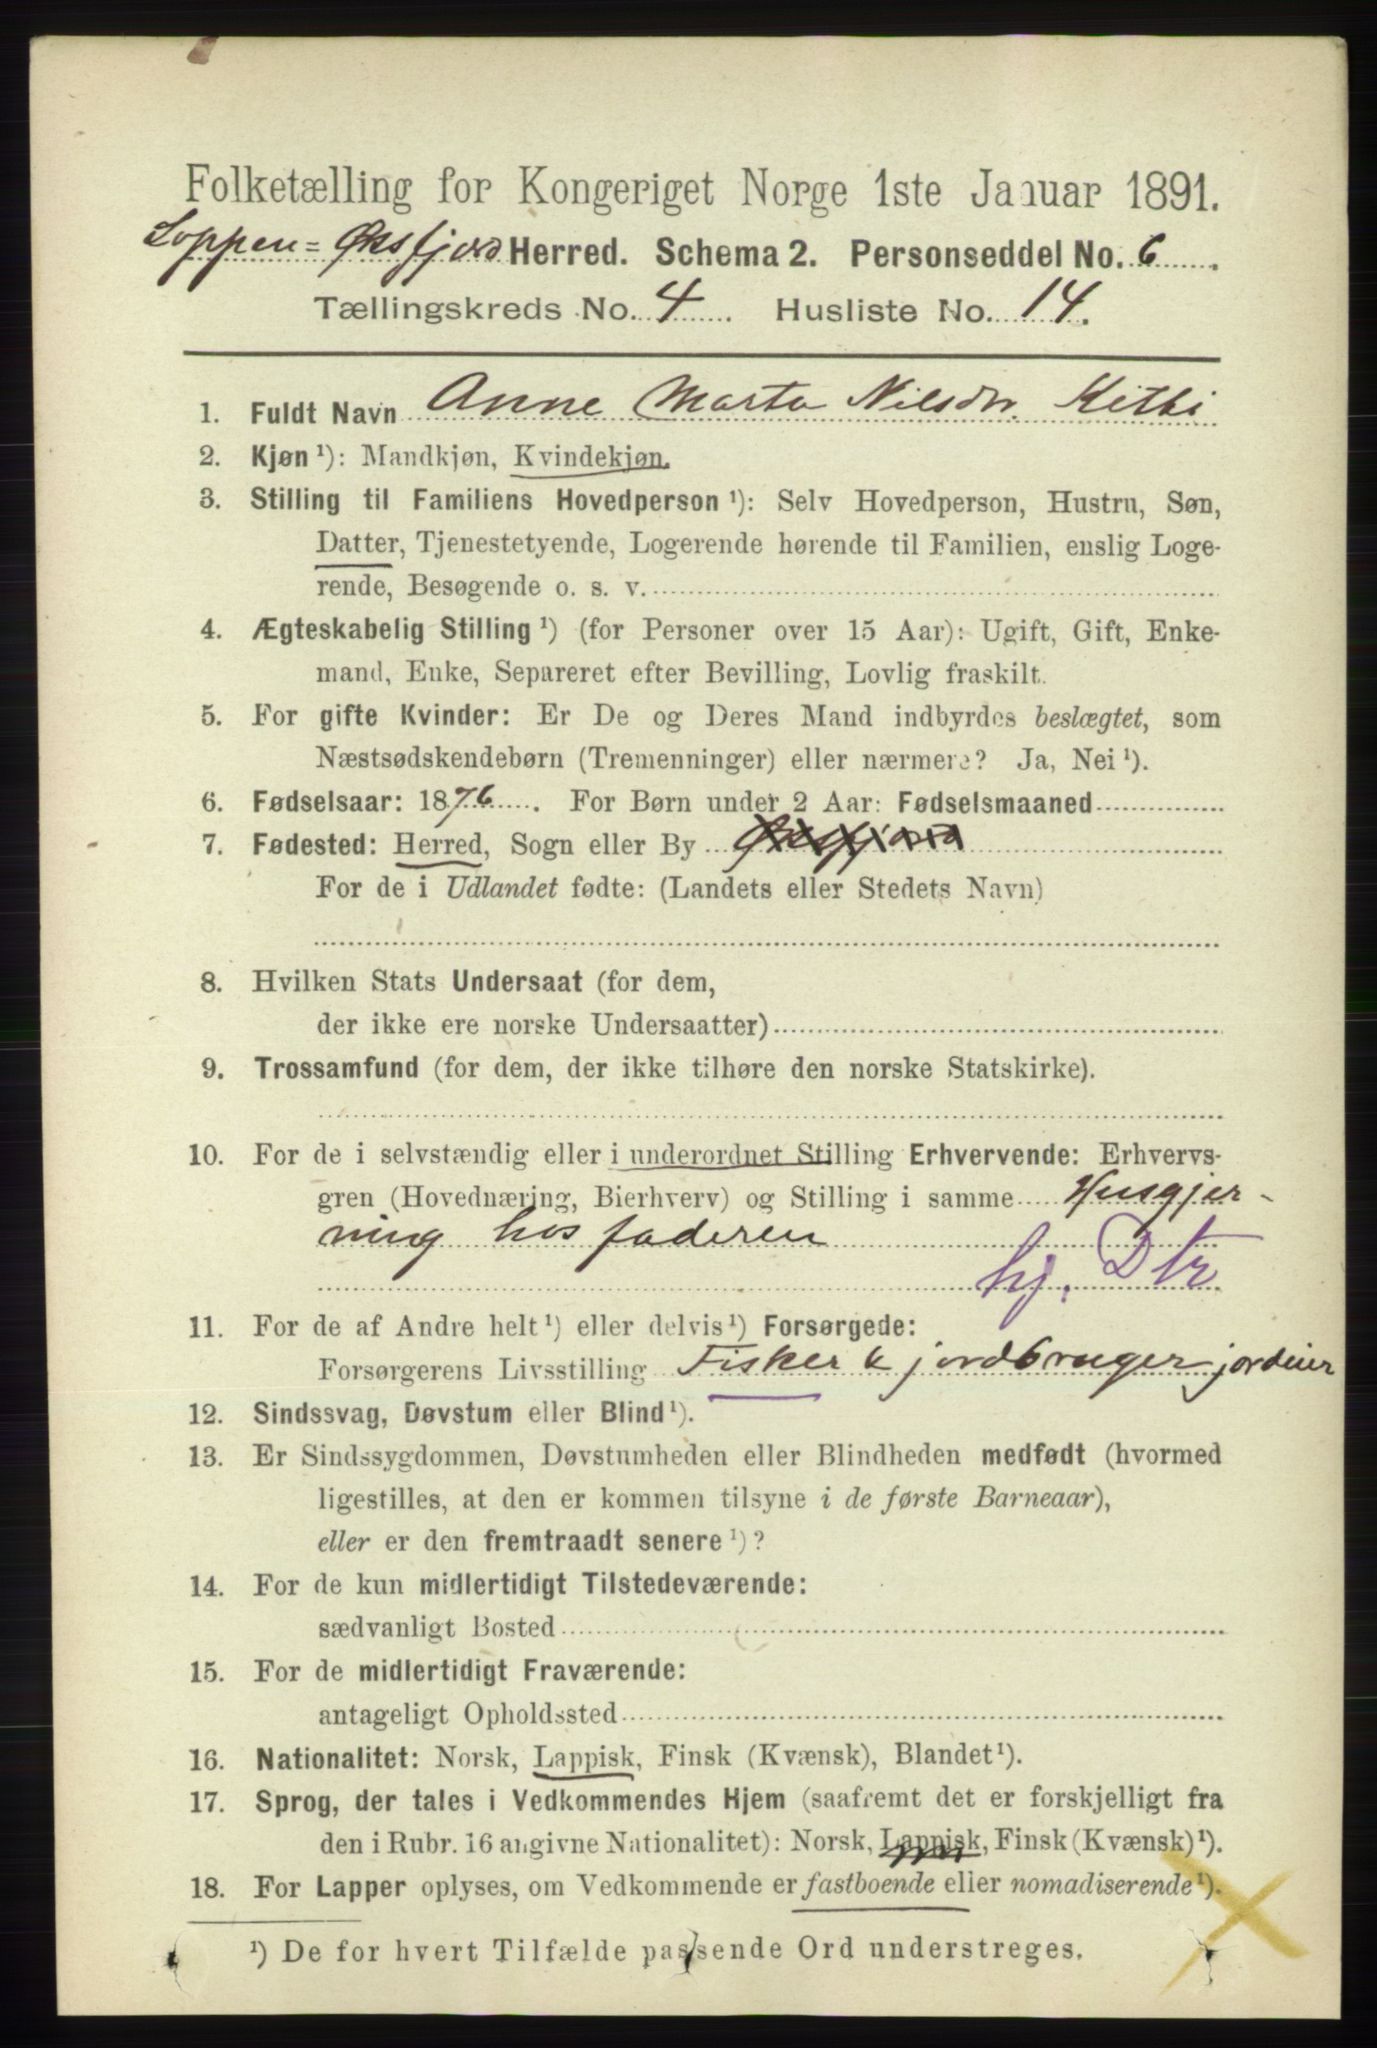 Folketælling for Kongeriget Norge 1ste Januar 1891.
Loppen = Øksfjord Herred. Schema 2. Personseddel No. 6
Tællingskreds No. 4 Husliste No. 14.
1. Fuldt Navn Anne Marta Nilsdtr. Kitti
2. Kjøn ¹): Mandkjøn, Kvindekjøn.
3. Stilling til Familiens Hovedperson ¹): Selv Hovedperson, Hustru, Søn,
Datter, Tjenestetyende, Logerende hørende til Familien, enslig Loge-
rende, Besøgende o. s. v.
4. Ægteskabelig Stilling ¹) (for Personer over 15 Aar): Ugift, Gift, Enke-
mand, Enke, Separeret efter Bevilling, Lovlig fraskilt.
5. For gifte Kvinder: Er De og Deres Mand indbyrdes beslægtet, som
Næstsødskendebørn (Tremenninger) eller nærmere? Ja, Nei ¹).
6. Fødselsaar: 1876. For Børn under 2 Aar: Fødselsmaaned
7. Fødested: Herred, Sogn eller By Øksfjord
For de i Udlandet fødte: (Landets eller Stedets Navn)
8. Hvilken Stats Undersaat (for dem,
der ikke ere norske Undersaatter)
9. Trossamfund (for dem, der ikke tilhøre den norske Statskirke).
10. For de i selvstændig eller i underordnet Stilling Erhvervende: Erhvervs-
gren (Hovednæring, Bierhverv) og Stilling i samme Husgjer-
ning hos faderen
hj. Dtr
11. For de af Andre helt ¹) eller delvis ¹) Forsørgede:
Forsørgerens Livsstilling Fisker & jordbruger jordeier
12. Sindssvag, Døvstum eller Blind ¹).
13. Er Sindssygdommen, Døvstumheden eller Blindheden medfødt (hvormed
ligestilles, at den er kommen tilsyne i de første Barneaar),
eller er den fremtraadt senere ¹)?
14. For de kun midlertidigt Tilstedeværende:
sædvanligt Bosted
15. For de midlertidigt Fraværende:
antageligt Opholdssted
16. Nationalitet: Norsk, Lappisk, Finsk (Kvænsk), Blandet ¹).
17. Sprog, der tales i Vedkommendes Hjem (saafremt det er forskjelligt fra
den i Rubr. 16 angivne Nationalitet): Norsk, Lappisk, Finsk (Kvænsk) ¹).
18. For Lapper oplyses, om Vedkommende er fastboende eller nomadiserende ¹).
¹) De for hvert Tilfælde passende Ord understreges.